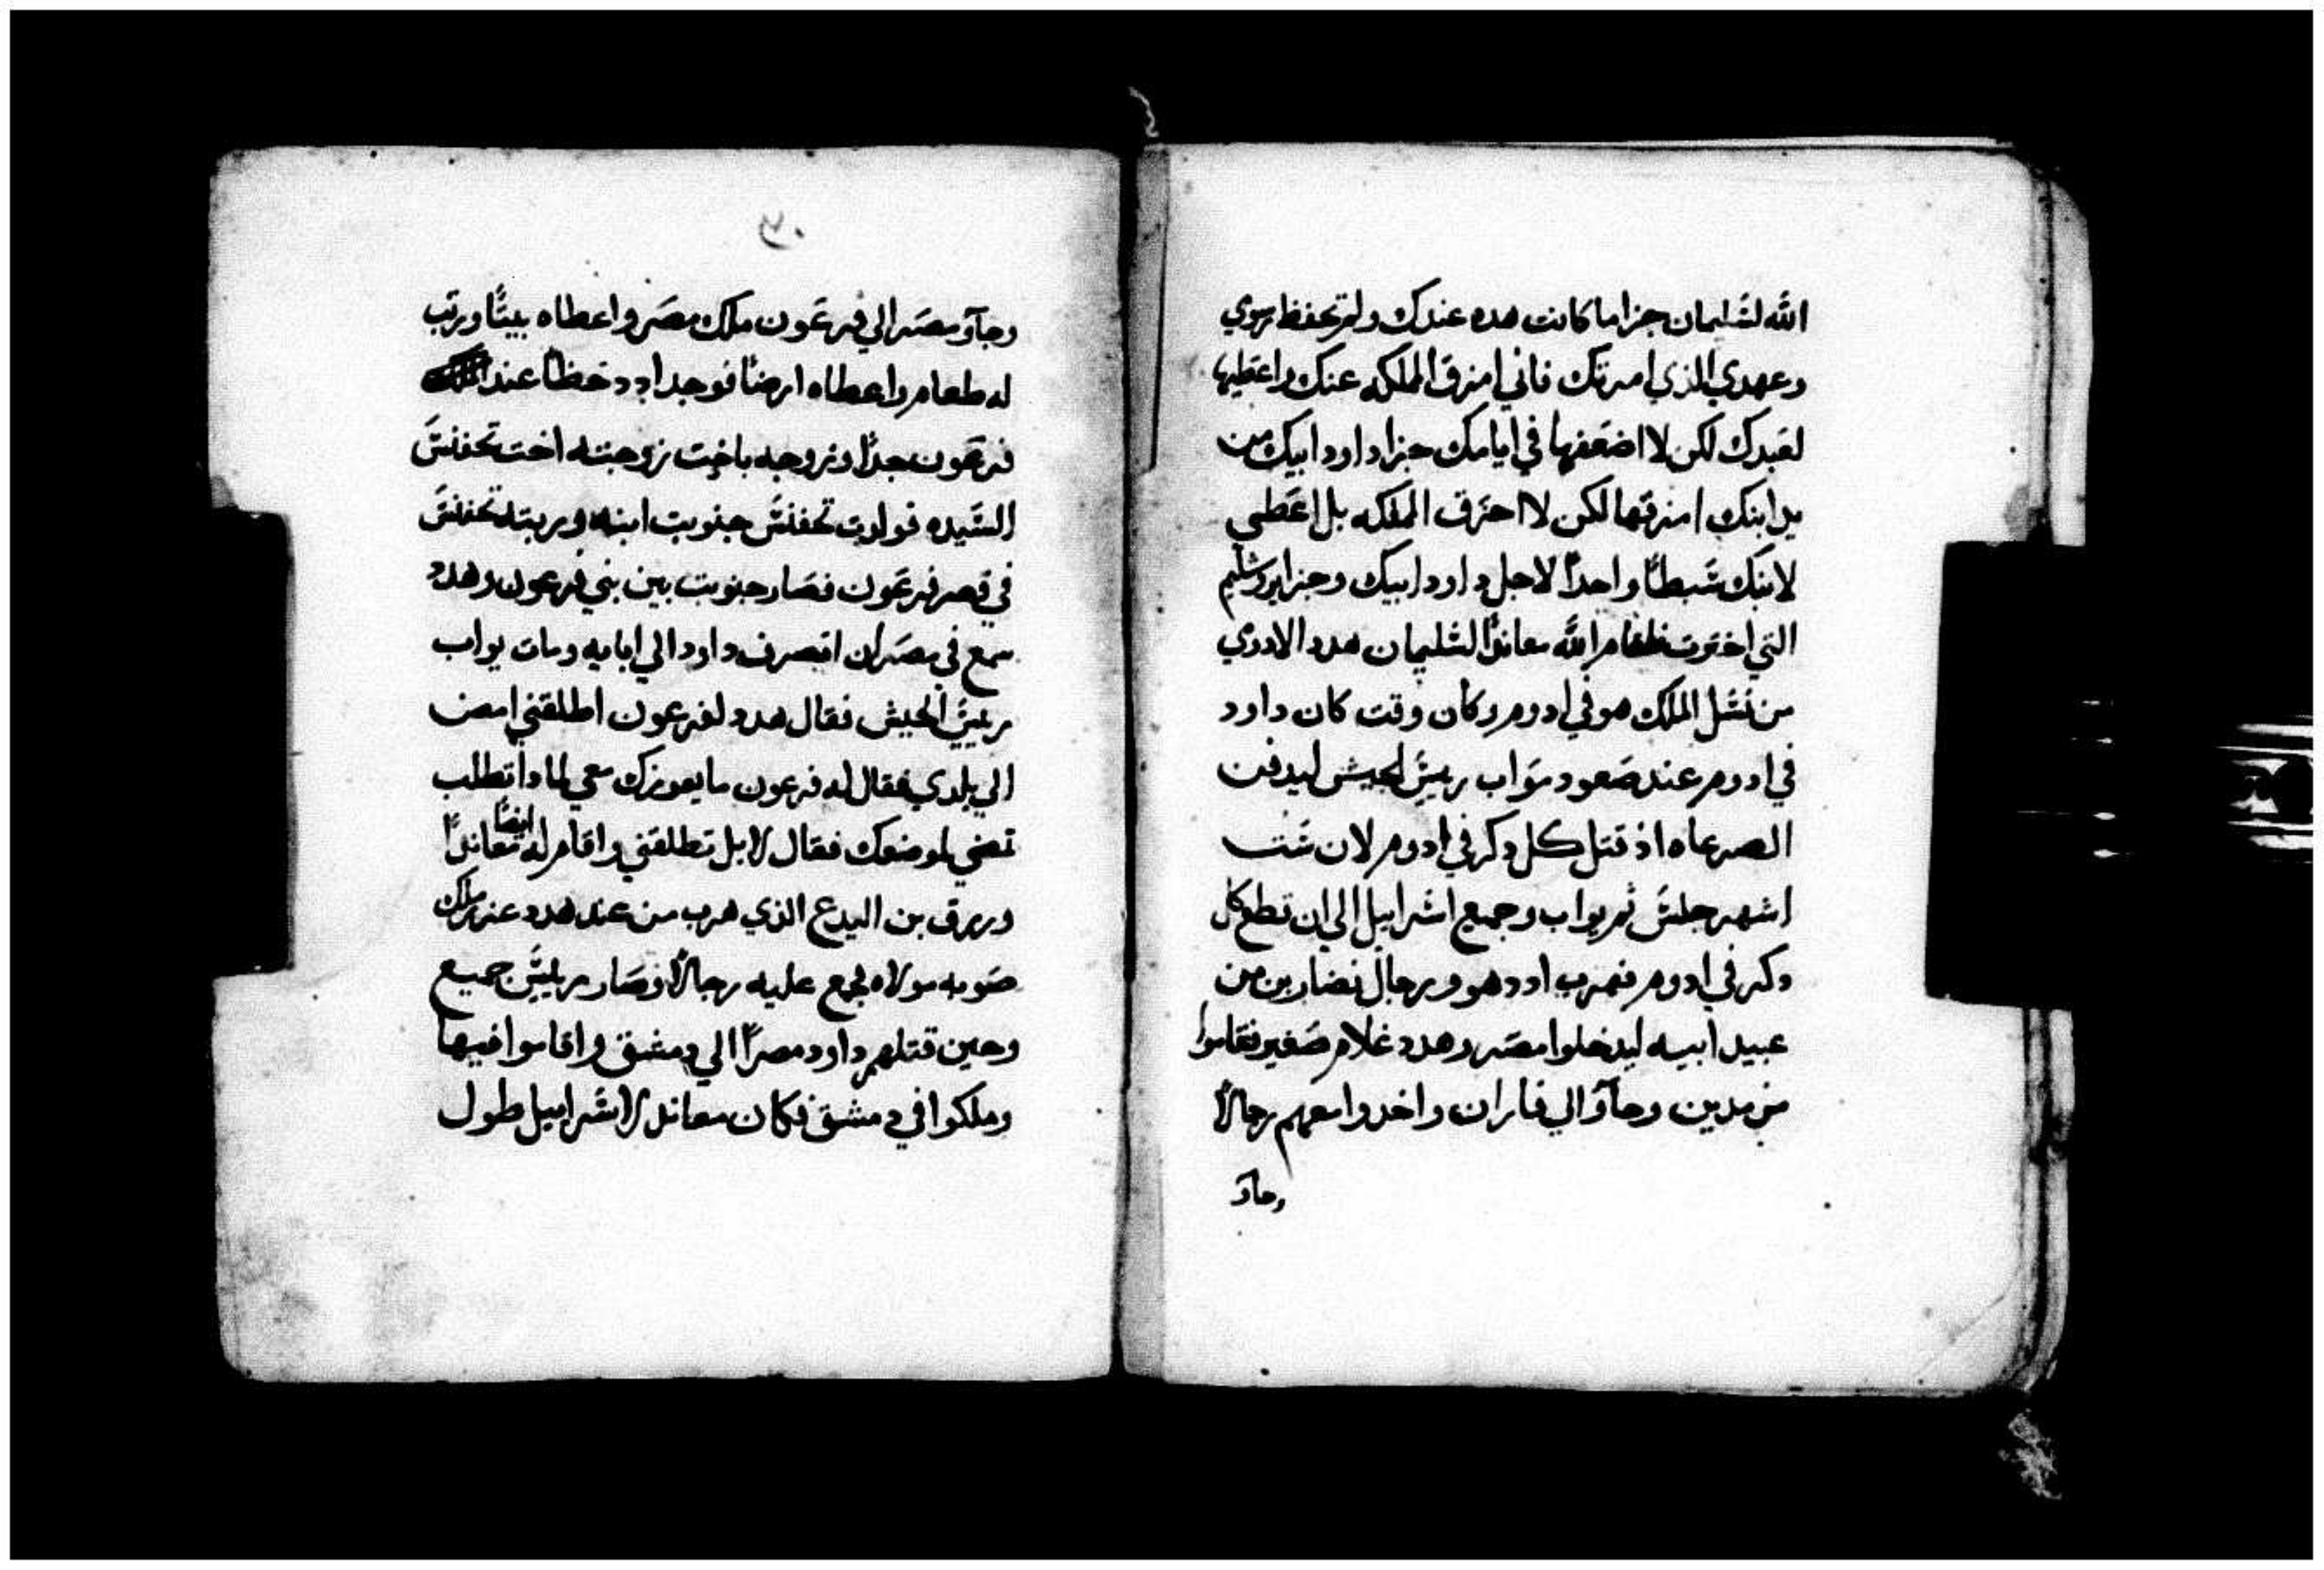 الله لسليمان جزا ما كانت هده عندك ولم تحفظ رسومي
وعهدي الذي امرتك فاني امزق المملكه عنك واعطيها
لعبدك لكن لا اضعفها في ايامك جزا داود ابيك من
يد ابنك امزقها لكن لا احزق المملكه بل اعطي
لابنك سبطًا واحدًا لاجل داود ابيك وجزا يروشليم
التي اخترت فاقام الله معاندًا لسليمان هدد الادومي
من نسل الملك هو في ادوم وكان وقت كان داود
في ادوم عند صعود يواب رييس الجيش ليدفن
الصرعاه اذ قتل كل دكر في ادوم لان ست
اشهر جلس ثم يواب وجميع اسراييل الي ان قطع كل
دكر في ادوم فهرب ادد هو ورجال نصاريين من
عبيد ابيه ليدخلوا مصر وهدد غلام صغير فقاموا
من مدين وجآوُ الي فاران واخدوا معهم رجالًا
وجاوُ
٧٠
وجآوُ مصر الي فرعون ملك مصر واعطاه بيتًا ورتب
له طعام واعطاه ارضًا فوجد ادد حظًا عند
فرعون جدًا وزوجه باخت زوجته اخت تحفنس
السيده فولدت تحفنس جنوبت ابنه وربته تحفنس
في قصر فرعون فصار جنوبت بين بني فرعون وهدد
سمع في مصر ان انصرف داود الي ابايه ومات يواب
رييس الجيش فقال هدد لفرعون اطلقني امض
الي بلدي فقال له فرعون ما يعوزك معي لمادا تطلب
تمضي لموضعك فقال لا بل تطلقني واقام له ايضًا معاندًا
ورزق بن اليدع الذي هرب من عند هدد عزر ملك
صوبه مولاه فجمع عليه رجالًا وصار رييس جميع
وحين قتلهم داود مصرًا الي دمشق واقاموا فيها
وملكوا في دمشق فكان معاند لاسراييل طول